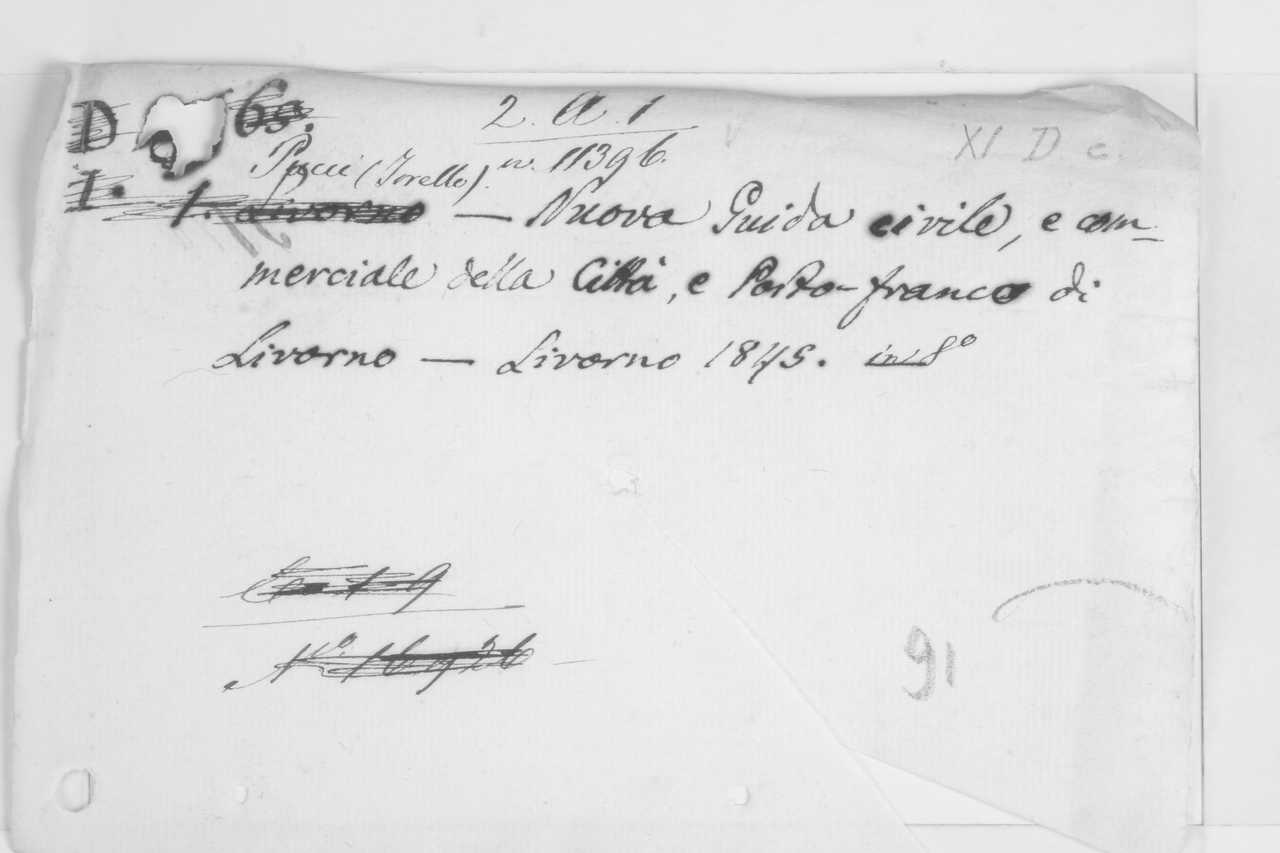 D 69.
2. A. 1
XI D c.
Pucci (Torello). n. 11396.
I. 1. Livorno — Nuova Guida civile, e com-
merciale della Città, e Porto-franco di
Livorno — Livorno 1845. in 8º
Nº 16926
91